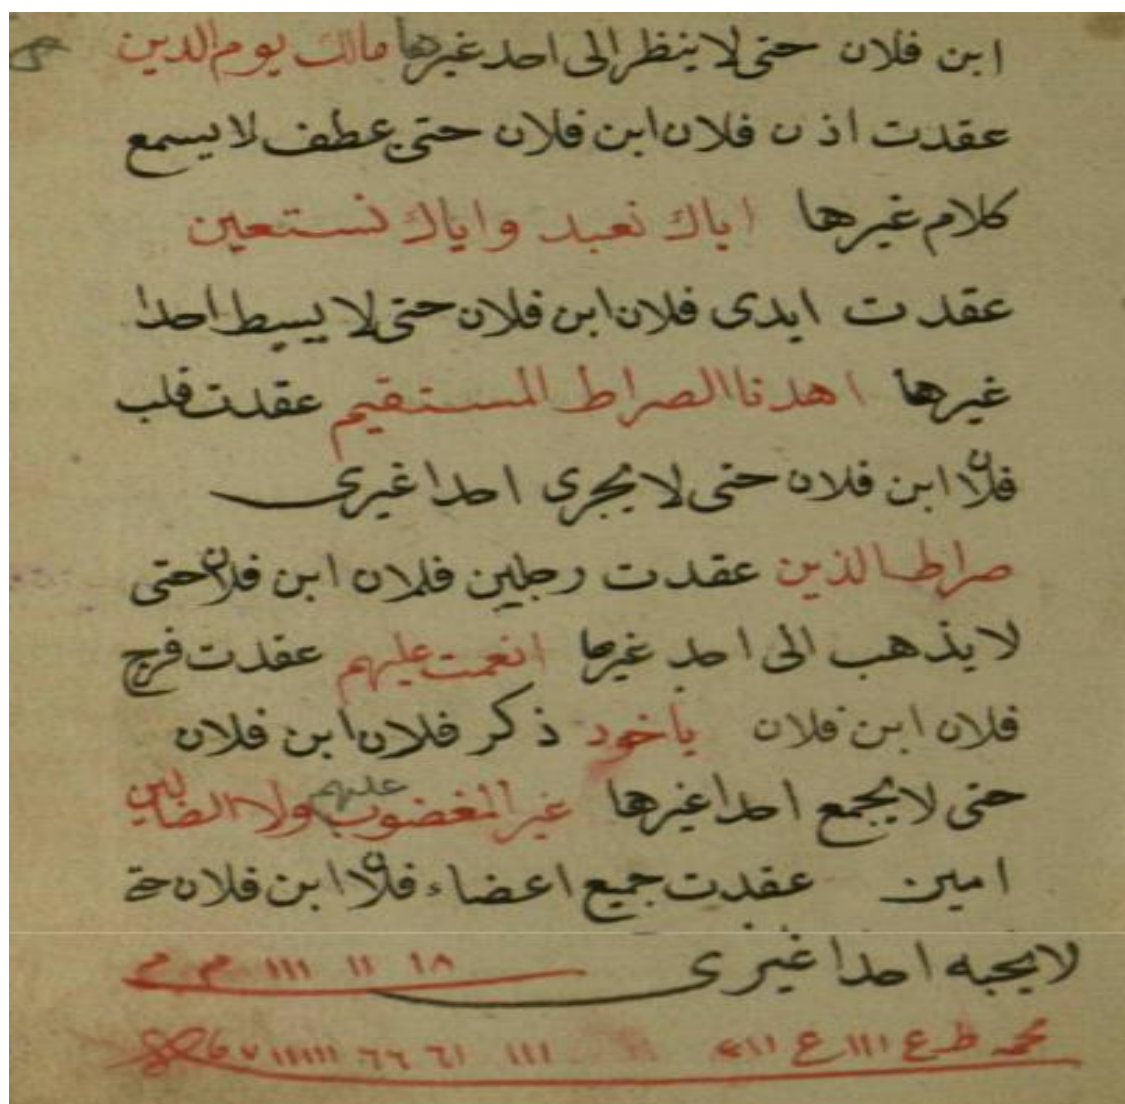 ابن فلان حتى لا ينظر الى احد غيرها مالك يوم الدين
عقدت اذن فلان ابن فلان حتى عطف لا يسمع
كلام غيرها اياك نعبد واياك نستعين
عقدت ايدى فلان ابن فلان حتى لا يبسط احدا
غيرها اهدنا الصراط المستقيم عقدت قلب
فلان ابن فلان حتى لا يجرى احدا غيرى
صراط الذين عقدت رجلين فلان ابن فلان حتى
لا يذهب الى احد غيرها انعمت عليهم عقدت فرج
فلان ابن فلان ياخود ذكر فلان ابن فلان
حتى لا يجمع احدا غيرها غير المغضوب عليهم ولا الضالين
امين عقدت جميع اعضاء فلان ابن فلان حتى
لا يحبه احدا غيرى ١٨ ١١ ١١١ م م
محمد ط ع ١١١ ع ١١١ ١١١ ٦١ ٦٦ ١١١١١ ٧